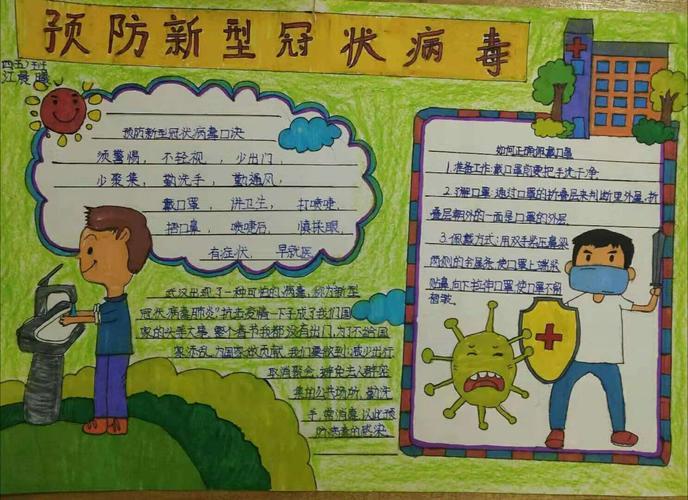 预防新型冠状病毒
江晨曦
预防新型冠状病毒口诀
须警惕，不轻视，少出门，
少聚集，勤洗手，勤通风，
戴口罩，讲卫生，打喷嚏，
捂口鼻，喷嚏后，慎揉眼，
有症状，早就医。
武汉出现了一种可怕的病毒，称为"新型
冠状病毒肺炎"抗击疫情一下子成了我们国
家的头等大事，整个春节我都没有出门，为了不给国
家添乱，为国家做贡献，我们要做到：减少出行
取消聚会，避免去人群密
集的公共场所，勤洗
手，常消毒，以此预
防病毒的感染
如何正确佩戴口罩
1.准备工作：戴口罩前要把手洗干净
2.了解口罩：透过口罩的折叠层来判断里外层，折
叠层朝外的一面是口罩的外层
3.佩戴方式：用双手紧压鼻梁
两侧的金属条，使口罩上端紧
贴鼻，向下拉伸口罩，使口罩不留
褶皱。